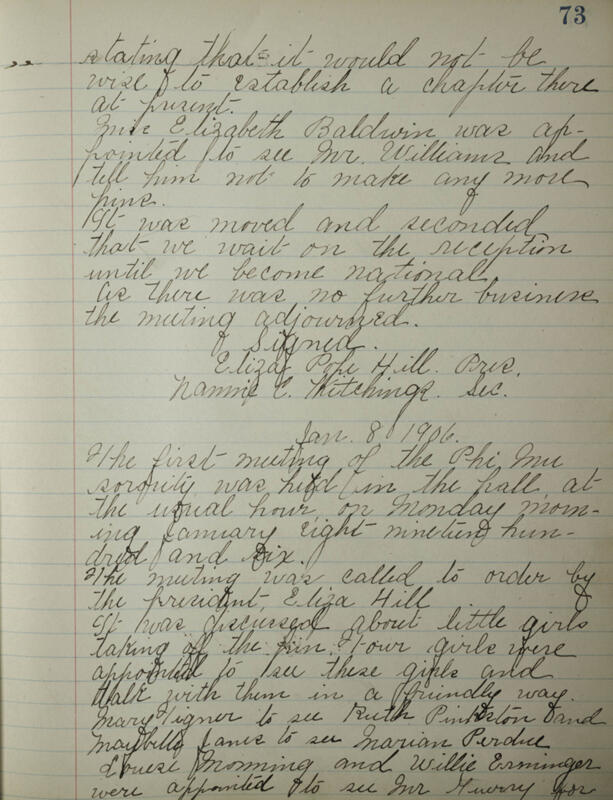 73
stating that it would not be
wise to establish a chapter there
at present.
Miss Elizabeth Baldwin was ap-
pointed to see Mr. Williams and
tell him not to make any more
pins.
It was moved and seconded
that we wait on the reception
until we become national.
As there was no further business
the meeting adjourned.
Signed.
Eliza Pope Hill. Pres.
Nannie C. Hitchings. Sec.
Jan. 8 1906.
The first meeting of the Phi Mu
sorority was held in the hall at
the usual hour on Monday morn-
ing January eight nineteen hun-
dred and six.
The meeting was called to order by
the president, Eliza Hill
It was discussed about little girls
taking off the pin. Four girls were
appointed to see these girls and
talk with them in a friendly way.
Mary Tigner to see Ruth Pinkston and
Maybelle Jones to see Marian Perdue.
Louese Monning and Willie Erminger
were appointed to see Mr